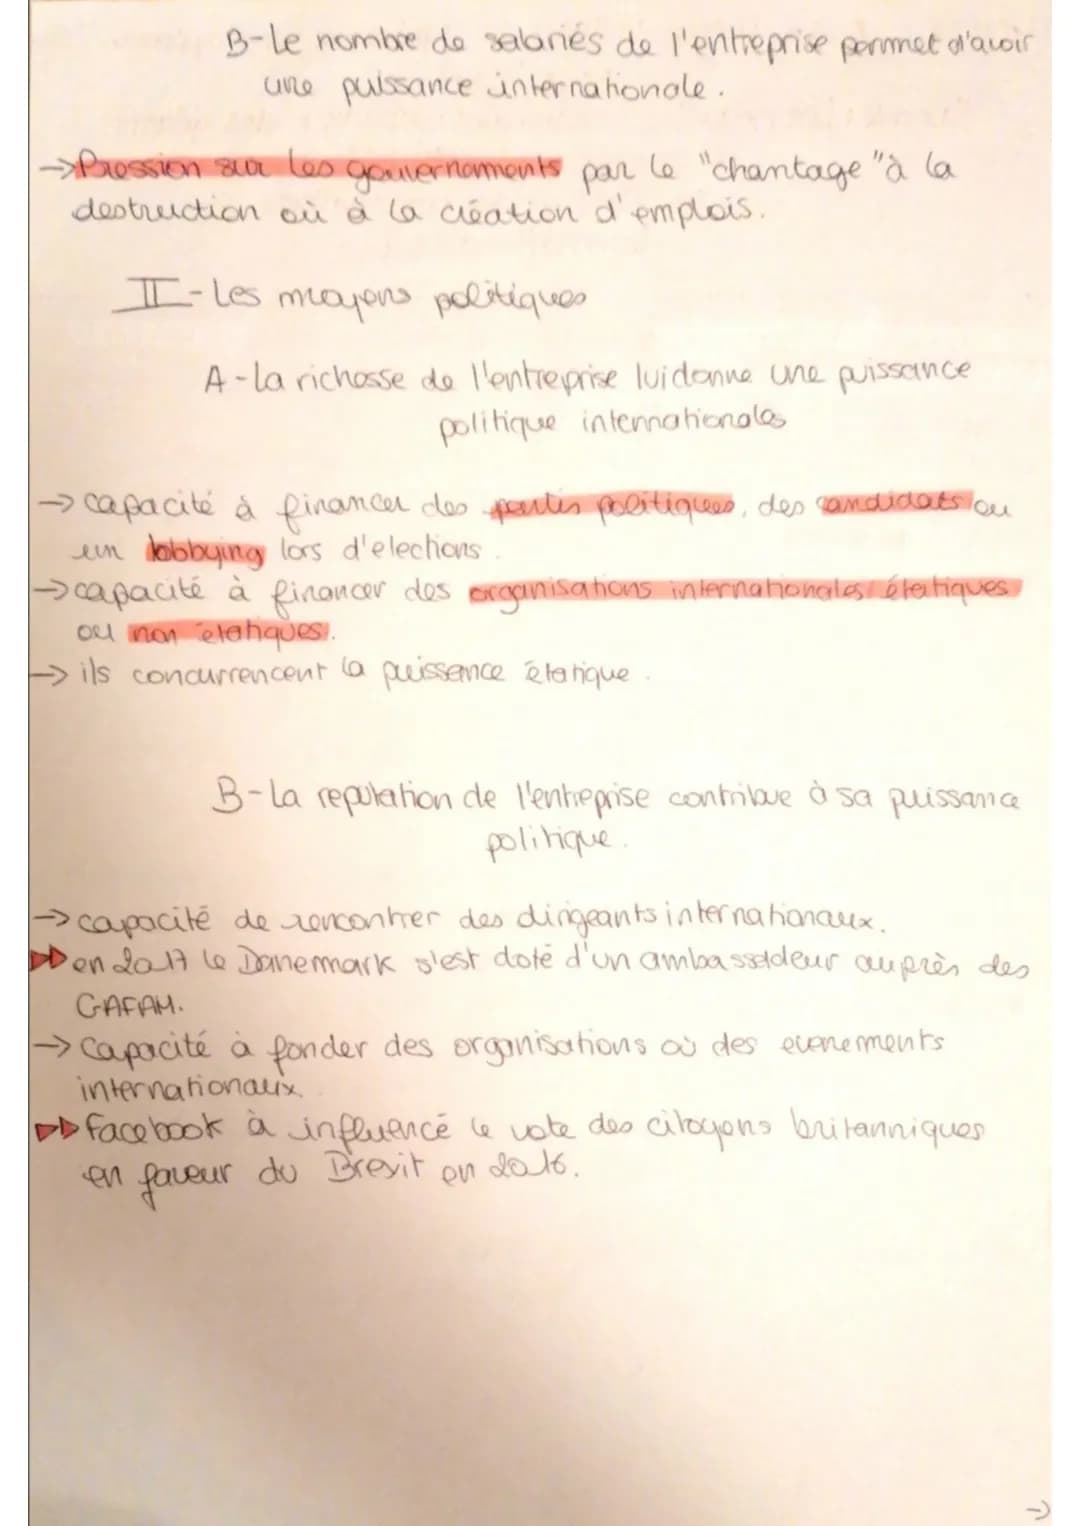 B-Le nombre de salariés de l'entreprise permet d'avoir
une puissance internationale.
→Pression sur les gouvernements par le "chantage" à la
destruction où à la création d'emplois.
II-Les moyens politiques
A-La richesse de l'entreprise lui donne une puissance
politique internationales
→capacité à financer des partis politiques, des candidats ou
un lobbying lors d'elections.
→capacité à financer des organisations internationales étatiques
ou non étatiques.
→ils concurrencent la puissance étatique.
B-La reputation de l'entreprise contribue à sa puissance
politique.
→capacité de rencontrer des dirigeants internationaux.
▷▷en 2017 le Danemark s'est doté d'un ambassadeur auprès des
GAFAM.
→Capacité à fonder des organisations où des evenements
internationaux.
▷▷Facebook à influencé le vote des citoyens britanniques
en faveur du Brexit en 2016.
→